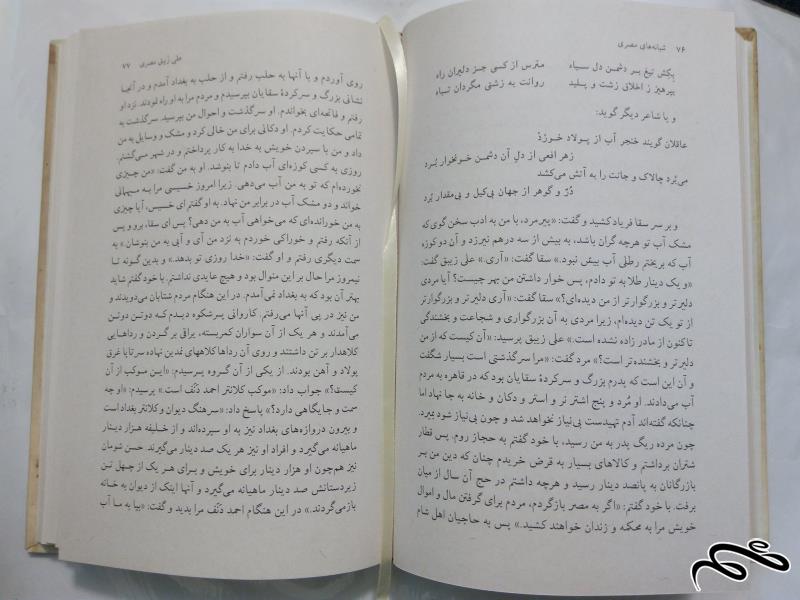 ۷۶ شبانه‌های مصری
بِکش تیغ بر دشمن دل سیاه مترس از کسی جز دلیران راه
بپرهیز ز اخلاق زشت و پلید روانت به زشتی مگردان تباه
و یا شاعر دیگر گوید:
عاقلان گویند خنجر آب از پولاد خورْد
زهر افعی از دلِ آن دشمن خونخوار بُرد
می‌بُرد چالاک و جانت را به آتش می‌کشد
دُرّ و گوهر از جهان بی‌کیل و بی‌مقدار بُرد
و بر سر سقا فریاد کشید و گفت: «پیرمرد، با من به ادب سخن گوی که
مشک آب تو هرچه گران باشد، به بیش از سه درهم نیرزد و آن دو کوزه
آب که بریختم رطلی آب بیش نبود.» سقا گفت: «آری.» علی زیبق گفت:
«و یک دینار طلا به تو دادم، پس خوار داشتن من بهر چیست؟ آیا مردی
دلیرتر و بزرگوارتر از من دیده‌ای؟» سقا گفت: «آری دلیرتر و بزرگوارتر
از تو یک تن دیده‌ام، زیرا مردی به آن بزرگواری و شجاعت و بخشندگی
تاکنون از مادر زاده نشده است.» علی زیبق پرسید: «آن کیست که از من
دلیرتر و بخشنده‌تر است؟» مرد گفت: «مرا سرگذشتی است بسیار شگفت
و آن این است که پدرم بزرگ و سرکردهٔ سقایان بود که در قاهره به مردم
آب می‌دادند. او مُرد و پنج اشتر نر و استر و دکان و خانه به جا نهاد اما
چنانکه گفته‌اند آدم تهیدست بی‌نیاز نخواهد شد و چون بی‌نیاز شود بمیرد.
چون مرده ریگ پدر به من رسید، با خود گفتم به حجاز روم. پس قطار
شتران برداشتم و کالاهای بسیار به قرض خریدم چنان که دین من بر
بازرگانان به پانصد دینار رسید و هرچه داشتم در حج آن سال از میان
برفت. با خود گفتم: «اگر به مصر بازگردم، مردم برای گرفتن مال و اموال
خویش مرا به محکمه و زندان خواهند کشید.» پس به حاجیان اهل شام
علی زیبق مصری ۷۷
روی آوردم و با آنها به حلب رفتم و از حلب به بغداد آمدم و در آنجا
نشانی بزرگ و سرکردهٔ سقایان بپرسیدم و مردم مرا به او راه نمودند. نزد او
رفتم و فاتحه‌ای بخواندم. او سرگذشت و احوال من بپرسید. سرگذشت به
تمامی حکایت کردم. او دکانی برای من خالی کرد و مشک و وسایل به من
داد و من با سپردن خویش به خدا به کار پرداختم و در شهر می‌گشتم.
روزی به کسی کوزه‌ای آب دادم تا بنوشد. او به من گفت: «من چیزی
نخورده‌ام که تو به من آب می‌دهی. زیرا امروز خسیسی مرا به مهمانی
خواند و دو مشک آب در برابر من نهاد. به او گفتم ای خسیس، آیا چیزی
به من خورانده‌ای که می‌خواهی آب به من دهی؟ پس ای سقا، برو و پس
از آنکه رفتم و خوراکی خوردم به نزد من آی و آبی به من بنوشان.» به
سمت دیگری رفتم و او گفت: «خدا روزی تو بدهد.» و بدین گونه تا
نیمروز مرا حال بر این منوال بود و هیچ عایدی نداشتم. با خود گفتم شاید
بهتر آن بود که به بغداد نمی‌آمدم. در این هنگام مردم شتابان می‌دویدند و
من نیز در پی آنها می‌رفتم. کاروانی پرشکوه دیدم که دوتن دوتن
می‌آمدند و هر یک از آن سواران کمربسته، یراقی بر گردن و رداهایی
کلاهدار بر تن داشتند و روی آن رداها کلاههای نمدین نهاده سرتا پا غرق
پولاد و آهن بودند. از یکی از آن گروه پرسیدم: «این موکب از آن
کیست؟» جواب داد: «موکب کلانتر احمد دَنَف است.» پرسیدم: «او چه
سمت و جایگاهی دارد؟» پاسخ داد: «سرهنگ دیوان و کلانتر بغداد است
و بیرون دروازه‌های بغداد نیز به او سپرده‌اند و از خلیفه هزار دینار
ماهیانه می‌گیرد و افراد او نیز هر یک صد دینار می‌گیرند. حسن شومان
نیز هم‌چون او هزار دینار برای خویش و برای هر یک از چهل تن
زیردستانش صد دینار ماهیانه می‌گیرد و آنها اینک از دیوان به خانه
بازمی‌گردند.» در این هنگام احمد دَنَف مرا بدید و گفت: «بیا به ما آب